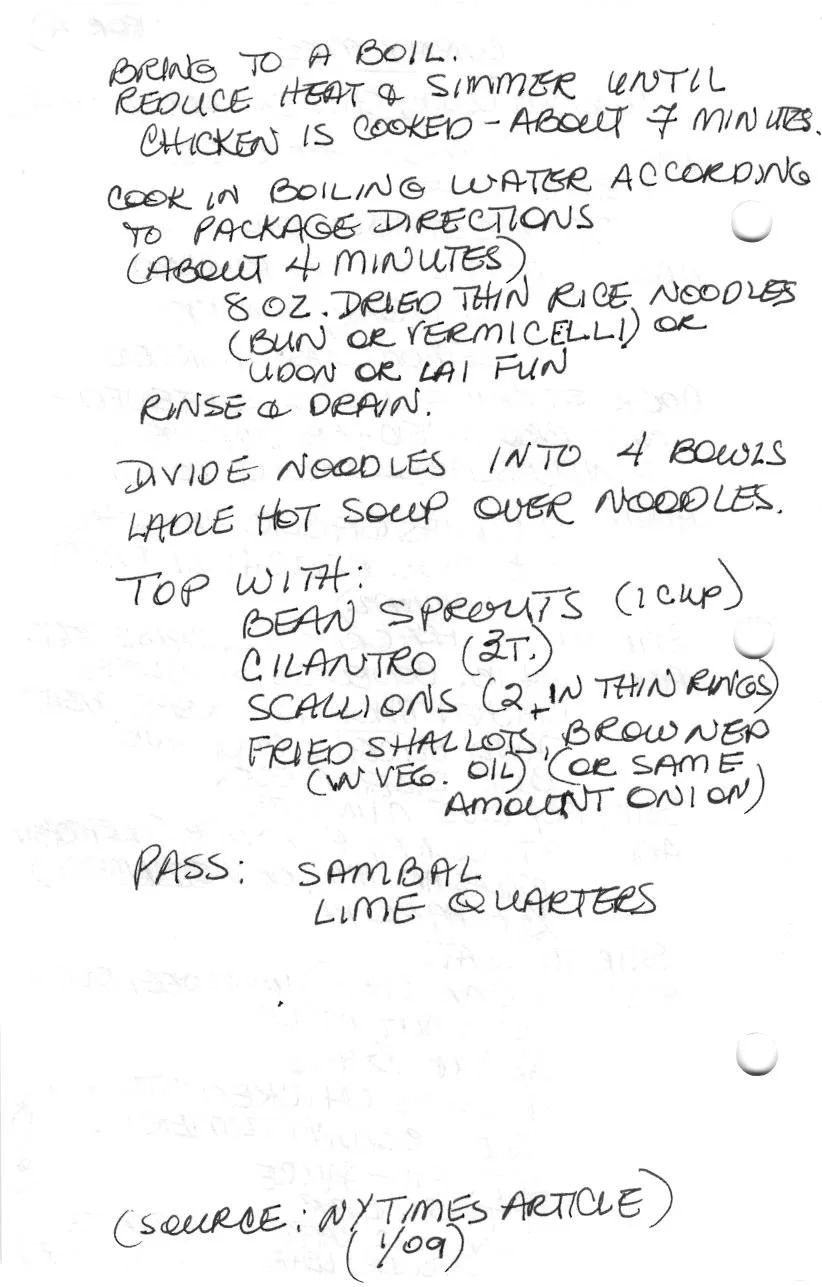 BRING TO A BOIL.
REDUCE HEAT & SIMMER UNTIL
CHICKEN IS COOKED - ABOUT 7 MINUTES.
COOK IN BOILING WATER ACCORDING
TO PACKAGE DIRECTIONS
(ABOUT 4 MINUTES)
8 OZ. DRIED THIN RICE NOODLES
(BUN OR VERMICELLI) OR
UDON OR LAI FUN
RINSE & DRAIN.
DIVIDE NOODLES INTO 4 BOWLS
LADLE HOT SOUP OVER NOODLES.
TOP WITH:
BEAN SPROUTS (1 CUP)
CILANTRO (3T.)
SCALLIONS (2, IN THIN RINGS)
FRIED SHALLOTS, BROWNED
(IN VEG. OIL) (OR SAME
AMOUNT ONION)
PASS: SAMBAL
LIME QUARTERS
(SOURCE: NY TIMES ARTICLE)
(1/09)